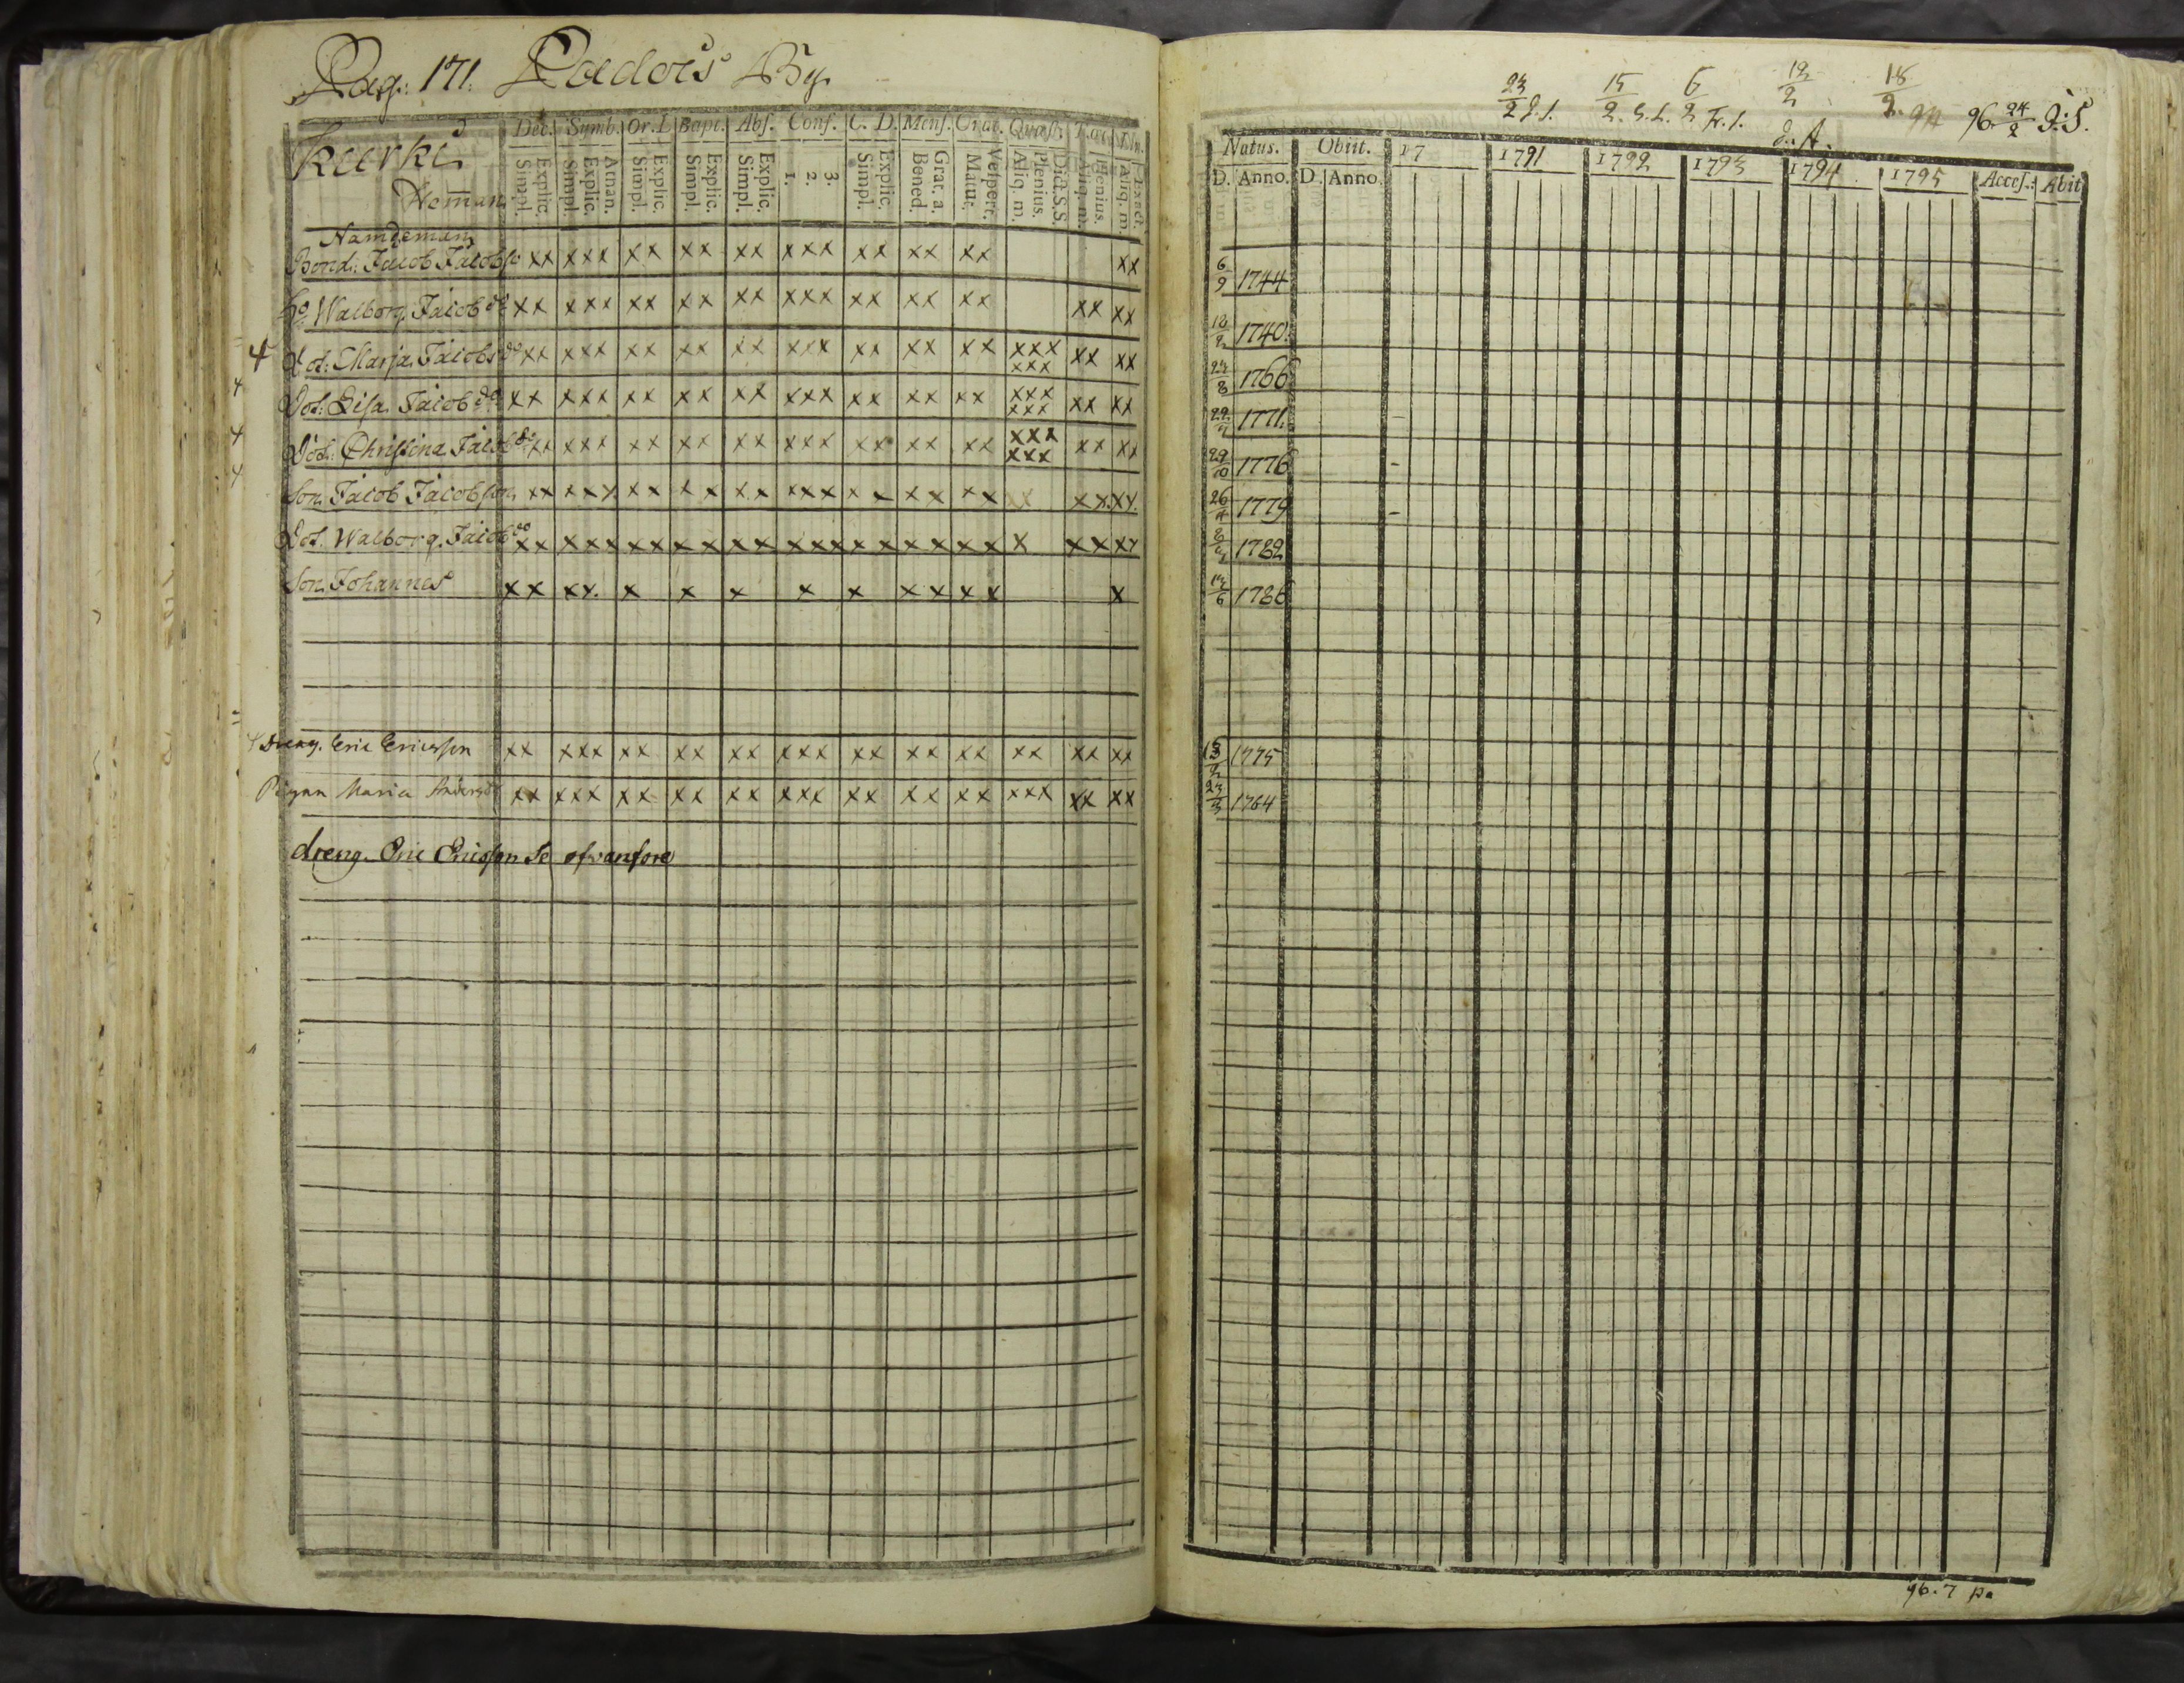 Pag: 171. By
Dec. Symb. Or. D Bapt. Abs. Conf. C. D. Mens. Orat. Quæst.
Explic. Simpl. Athan. Explic. Simpl. Explic. Simpl. Explic. Simpl. Explic. Simpl. 3. 2. 1. Explic. Simpl. Grat. a. Bened. Vespert. Matut. Dict. S.S. Plenius. Aliq. m. Plenius. Aliq. m.
Heman
Nämdeman
Bond: Jacob Jacobss xx xxx xx xx xx xxx xx xx xx xx
h:o Walborg Jacobsdr xx xxx xx xx xx xxx xx xx xx xx xx
4 Dot: Marja Jacobsdo xx xxx xx xx xx xxx xx xx xx xxx xxx xx xx
4 Dot: Lisa Jacobdo xx xxx xx xx xx xxx xx xx xx xxx xxx xx xx
4 Dot: Christina Jacobdo xx xxx xx xx xx xxx xx xx xx xxx xxx xx xx
4 Son Jacob Jacobsson xx xxx xx xx xx xxx xx xx xx xx xx xx
Dot. Walborg Jacobdo xx xxx xx xx xx xxx xx xx xx x xx xx
Son Johannes xx xx. x x x x x xx xx x
Dreng. Eric Ericsson xx xxx xx xx xx xxx xx xx xx xx xx xx
Pigan Maria Andersdr xx xxx xx xx xx xxx xx xx xx xxx xx xx
dreng. Eric Ericsson Se ofvanföre
23/2 15/2 6/2 12/2 18/2 94 96 24/2
Natus. Obiit. 17 1791 1792 1793 1794 1795 Acces. Abit
D. Anno. D. Anno.
6/9 1744
18/2 1740.
1766
1771.
29/10 1776
26/4 1779
1782
1786
1775
1764
96. 7 p.